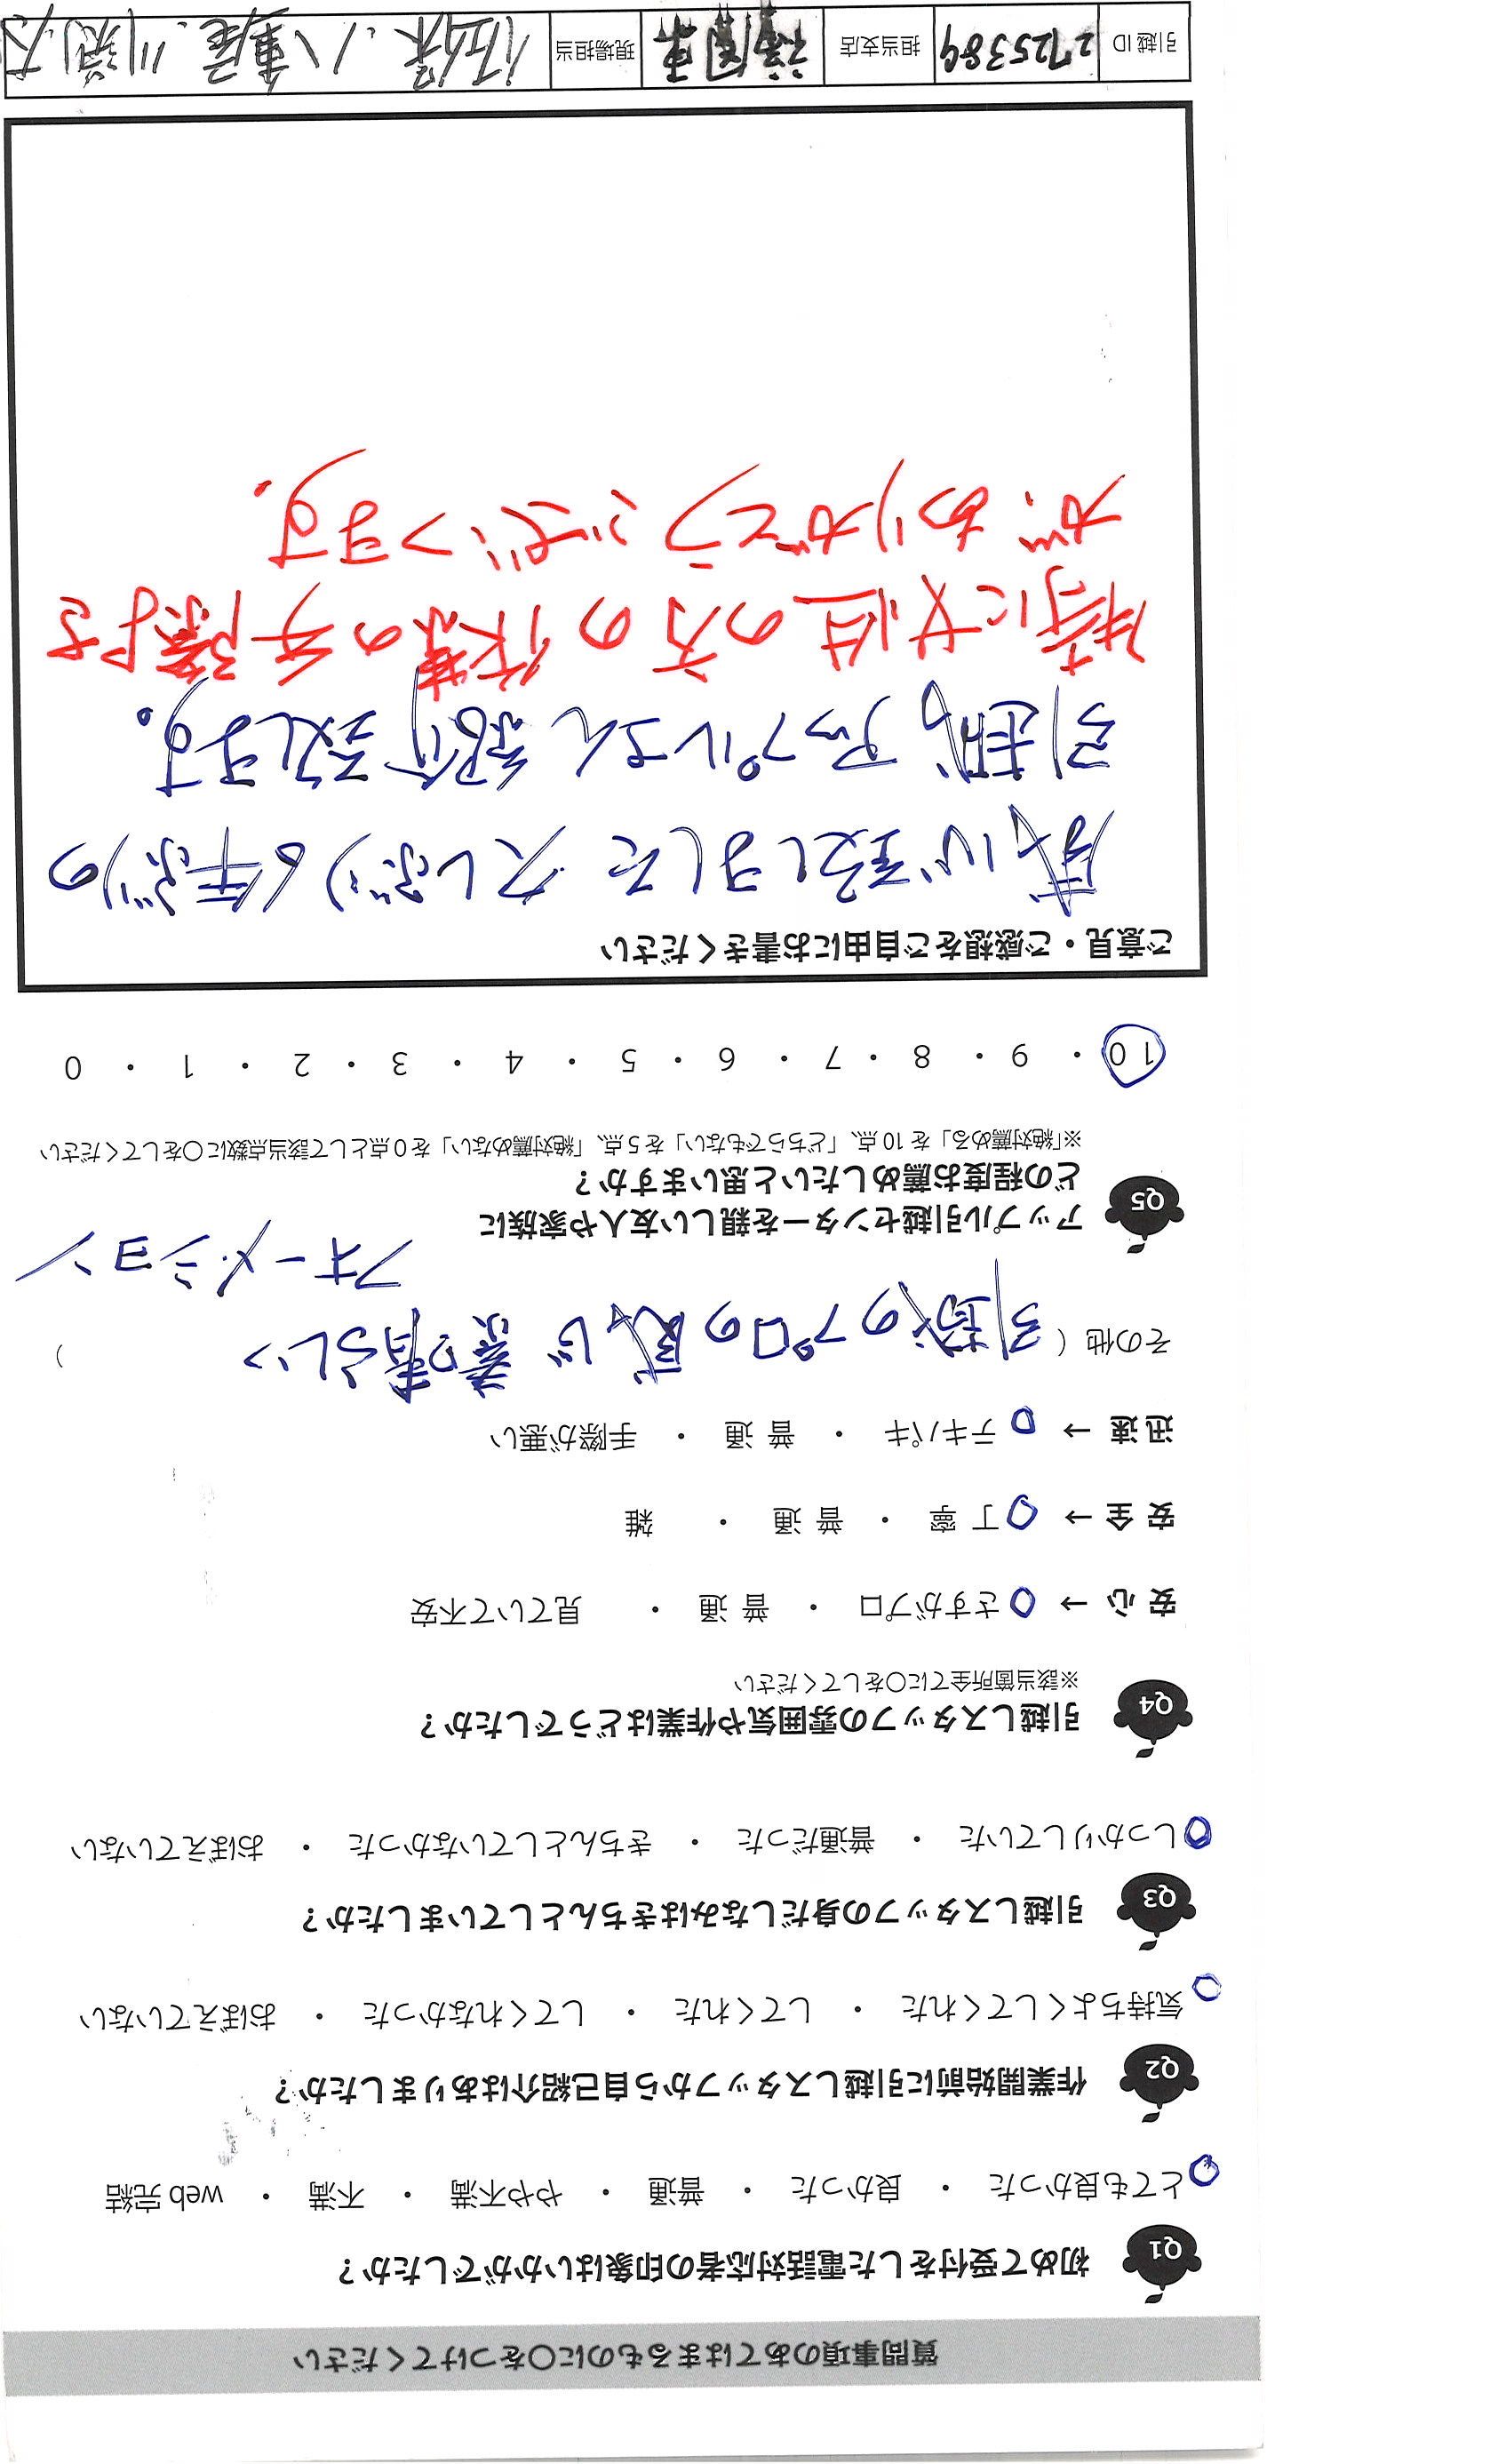 質問事項のあてはまるものに〇をつけてください
Q1 初めて受付をした電話対応者の印象はいかがでしたか？
〇とても良かった ・ 良かった ・ 普通 ・ やや不満 ・ 不満 ・ web完結
Q2 作業開始前に引越しスタッフから自己紹介はありましたか？
〇気持ちよくしてくれた ・ してくれた ・ してくれなかった ・ おぼえていない
Q3 引越しスタッフの身だしなみはきちんとしていましたか？
〇しっかりしていた ・ 普通だった ・ きちんとしていなかった ・ おぼえていない
Q4 引越しスタッフの雰囲気や作業はどうでしたか？
※該当箇所全てに〇をしてください
安心 → 〇さすがプロ ・ 普通 ・ 見ていて不安
安全 → 〇丁寧 ・ 普通 ・ 雑
迅速 → 〇テキパキ ・ 普通 ・ 手際が悪い
その他（ 引越のプロの感じ 素晴らしい ）
フォーメーション
Q5 アップル引越センターを親しい友人や家族に
どの程度お薦めしたいと思いますか？
※「絶対薦める」を10点、「どちらでもない」を5点、「絶対薦めない」を0点として該当点数に〇をしてください
10 ・ 9 ・ 8 ・ 7 ・ 6 ・ 5 ・ 4 ・ 3 ・ 2 ・ 1 ・ 0
ご意見・ご感想をご自由にお書きください
感心致しました 久しぶり 6年ぶりの
引越 アップルさん 紹介致します。
特に女性の方の作業の手際よさ
が、ありがとうございます.
引越ID 2725389 担当支店 福岡東 現場担当 八重尾、川